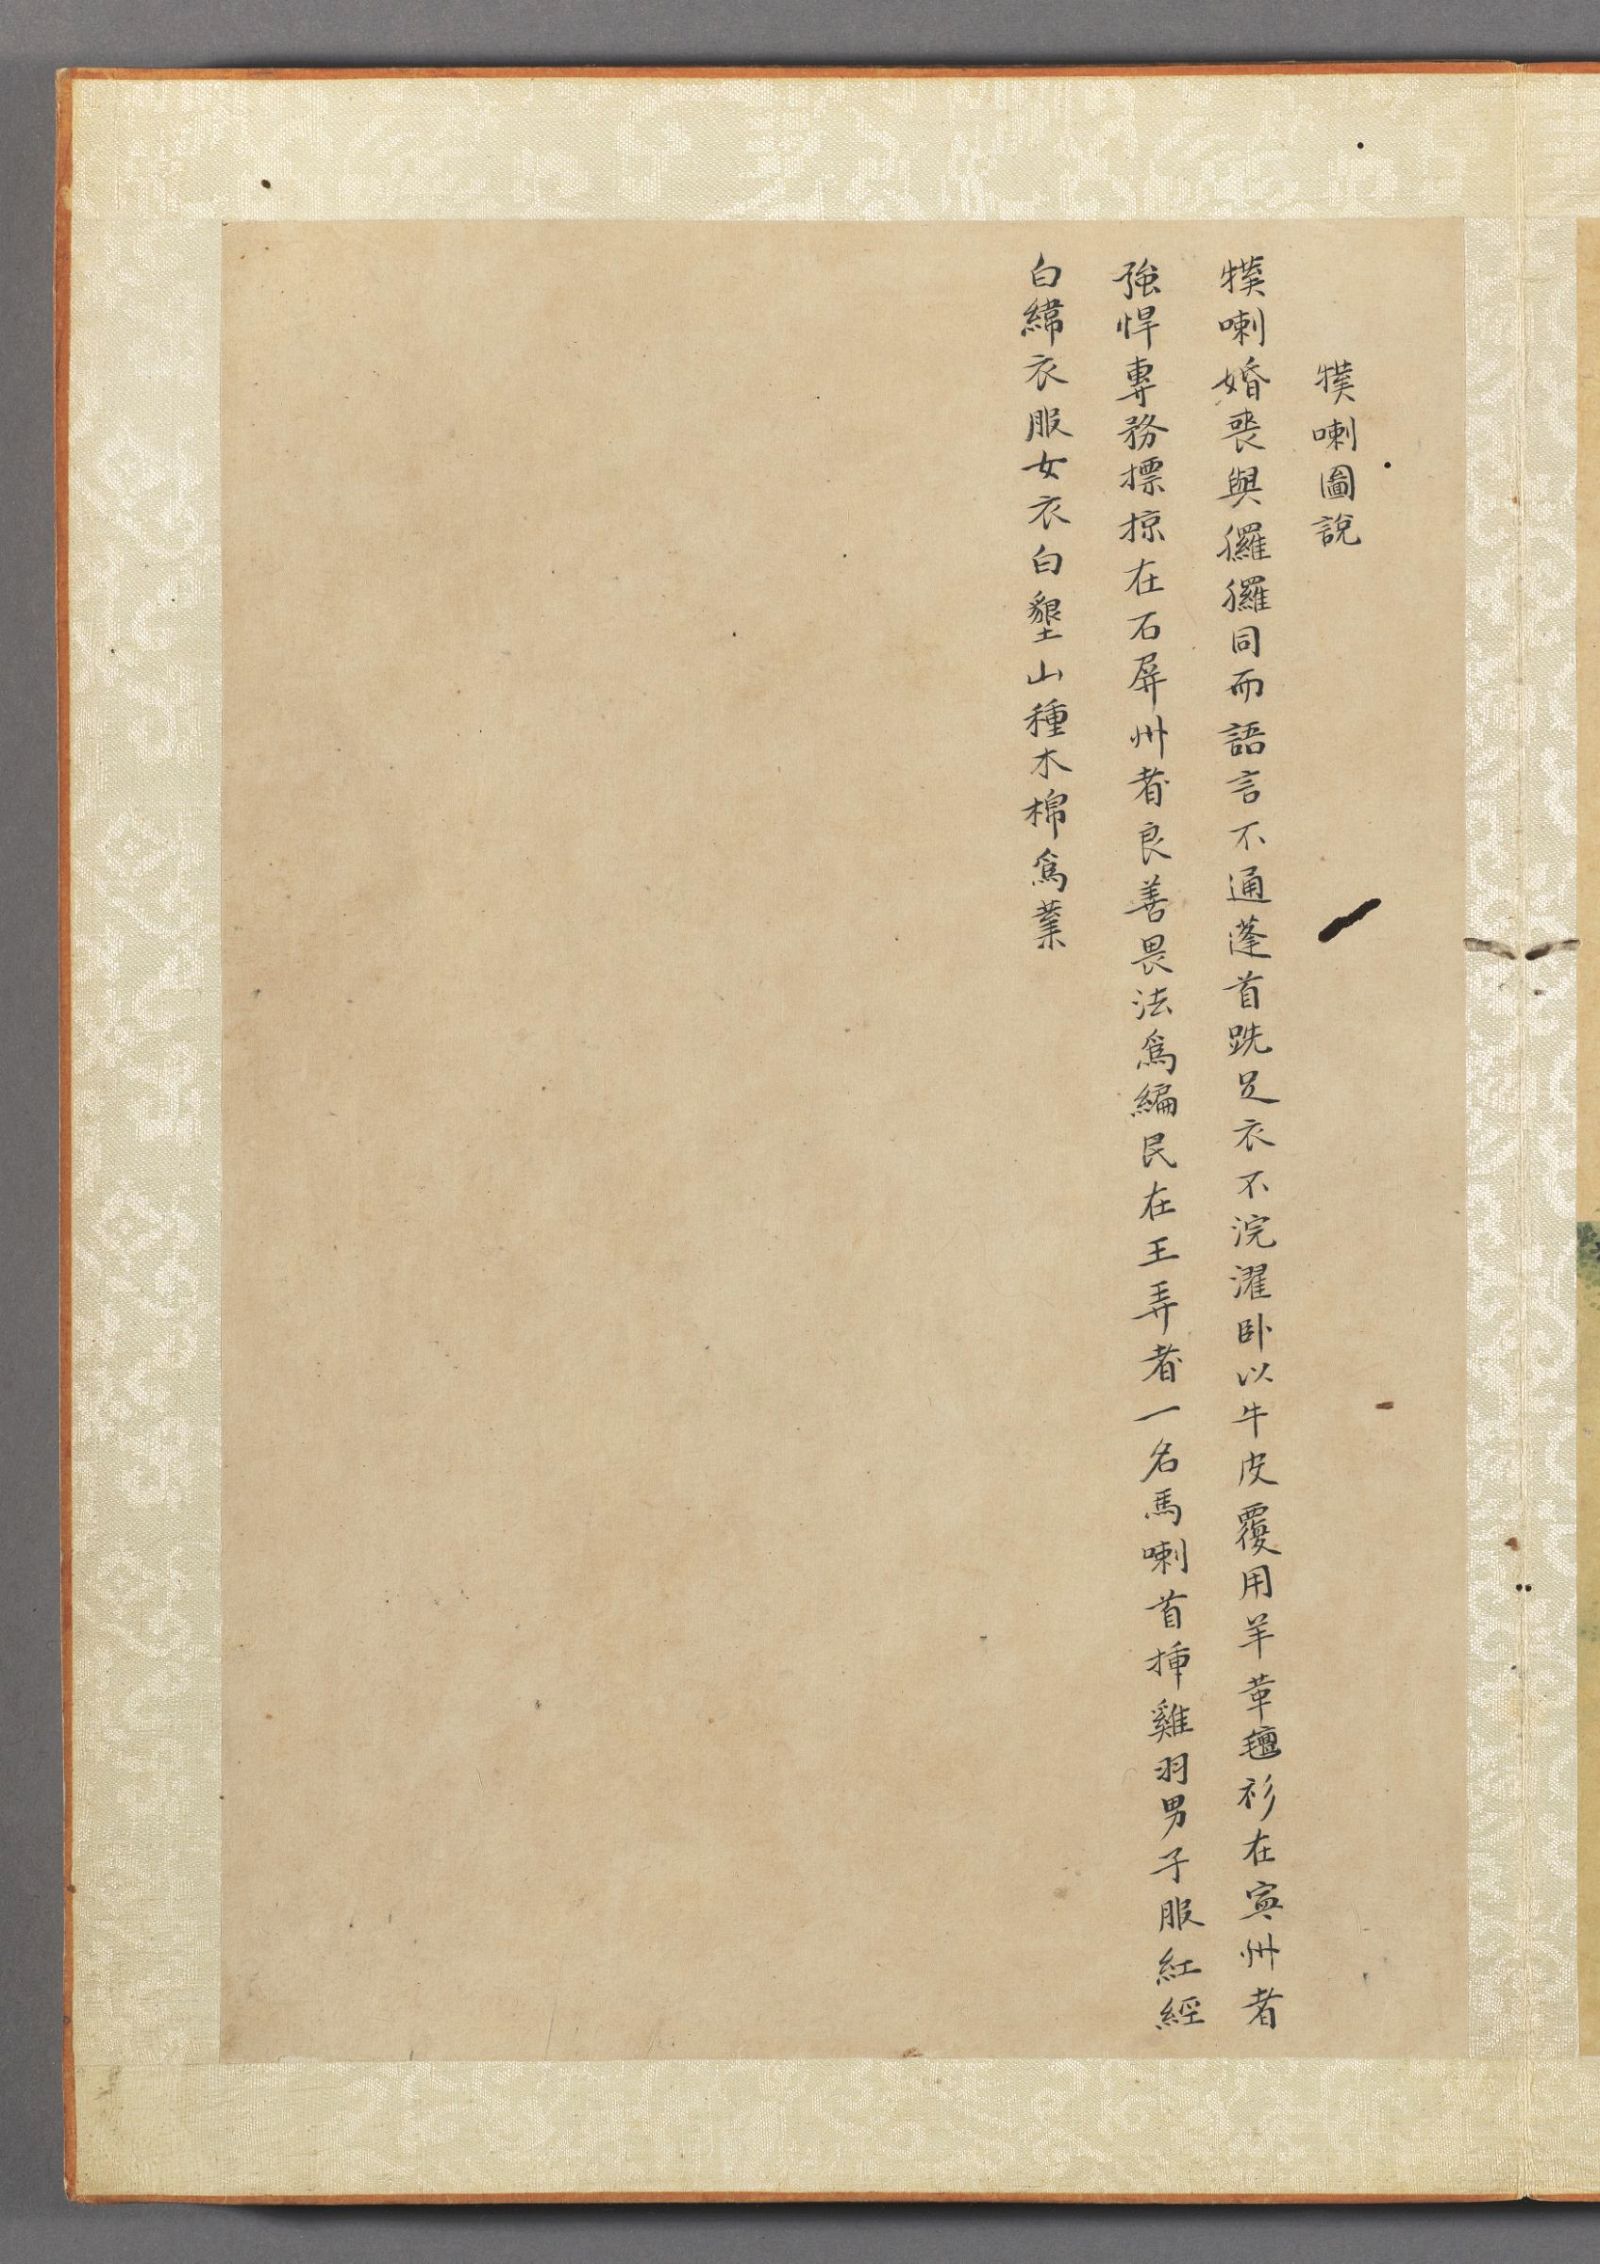 㹒喇圖說
㹒喇婚喪與玀玀同而語言不通蓬首跣足衣不浣濯卧以牛皮覆用羊革氊衫在寧州者
強悍專務摽掠在石屏州者良善畏法爲編民在王弄者一名馬喇首揷雞羽男子服紅經
白緯衣服女衣白墾山種木棉爲業